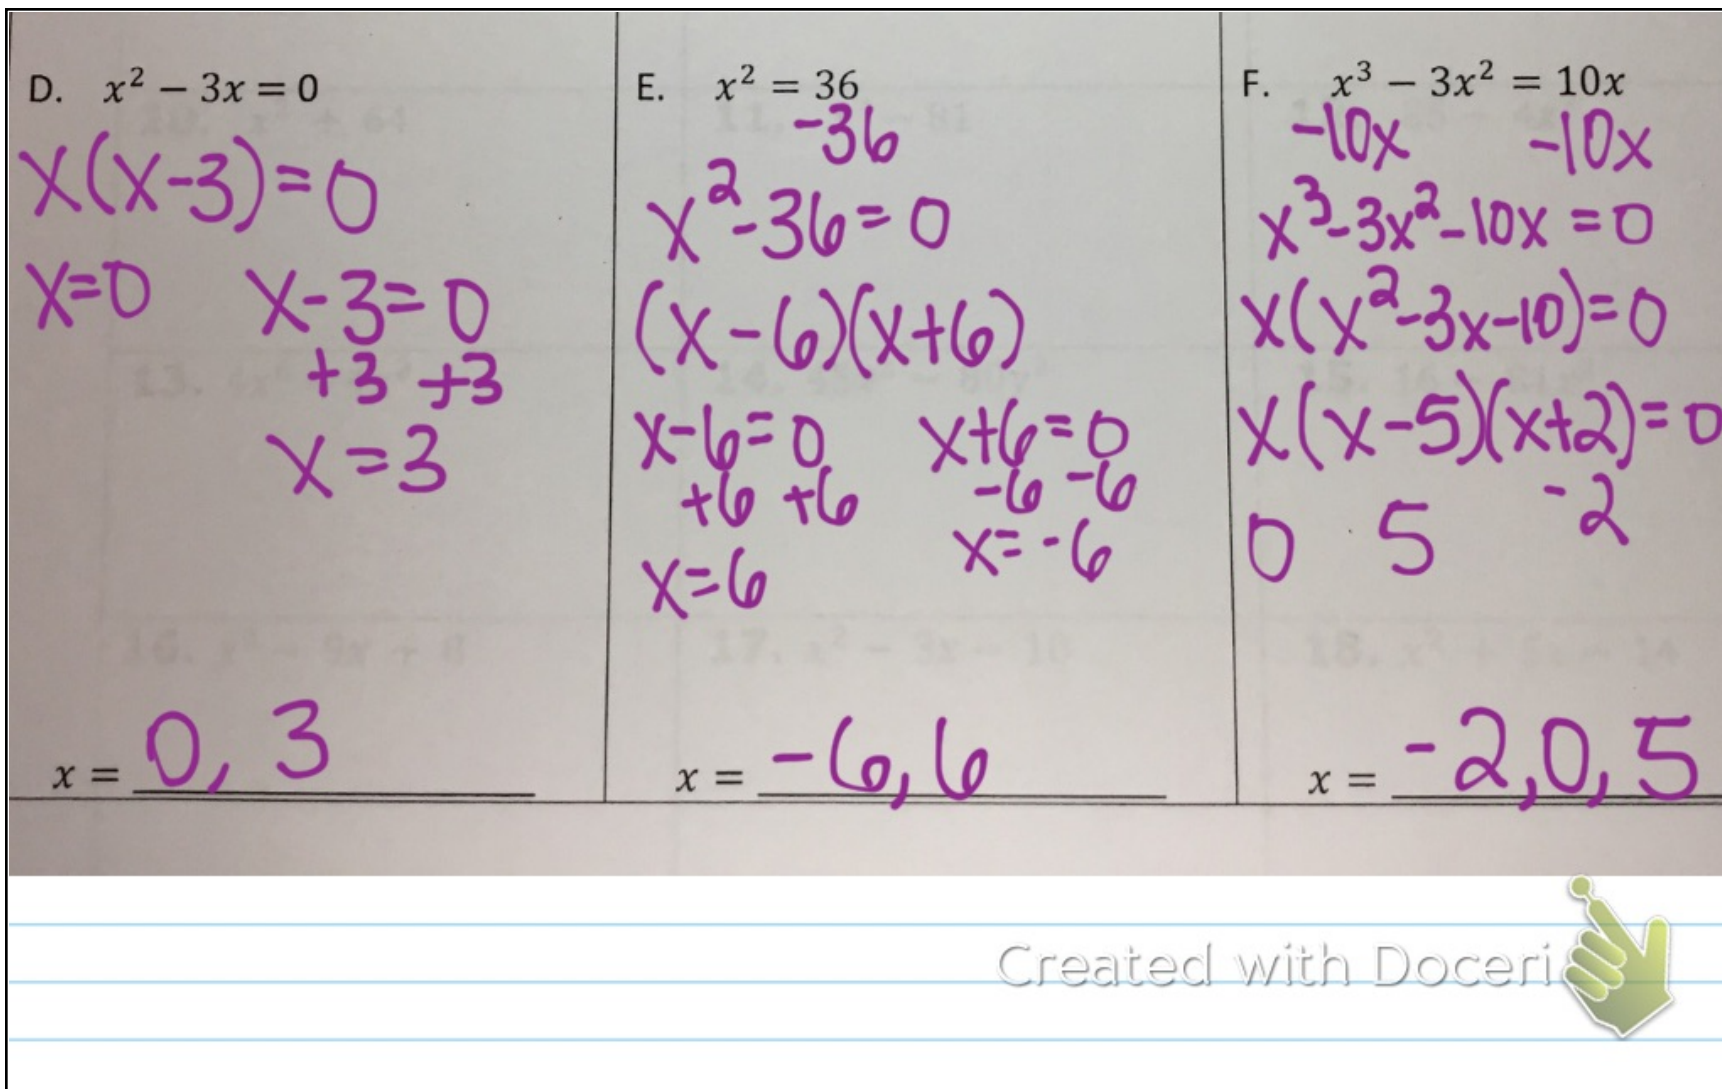 D. x² − 3x = 0
x(x-3)=0
x=0 x-3=0
+3 +3
x=3
x = 0, 3
E. x² = 36
-36
x²-36=0
(x-6)(x+6)
x-6=0 x+6=0
+6 +6 -6 -6
x=6 x=-6
x = -6, 6
F. x³ − 3x² = 10x
-10x -10x
x³-3x²-10x=0
x(x²-3x-10)=0
x(x-5)(x+2)=0
0 5 -2
x = -2, 0, 5
Created with Doceri